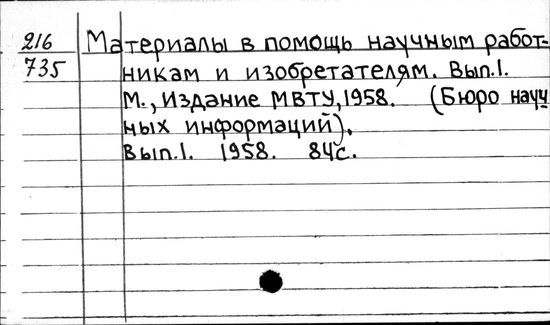 216 Материалы в помощь научным работ-
735 никам и изобретателям. Вып.1.
М., Издание МВТУ, 1958. (Бюро науч
ных информаций).
Вып.1. 1958. 84с.